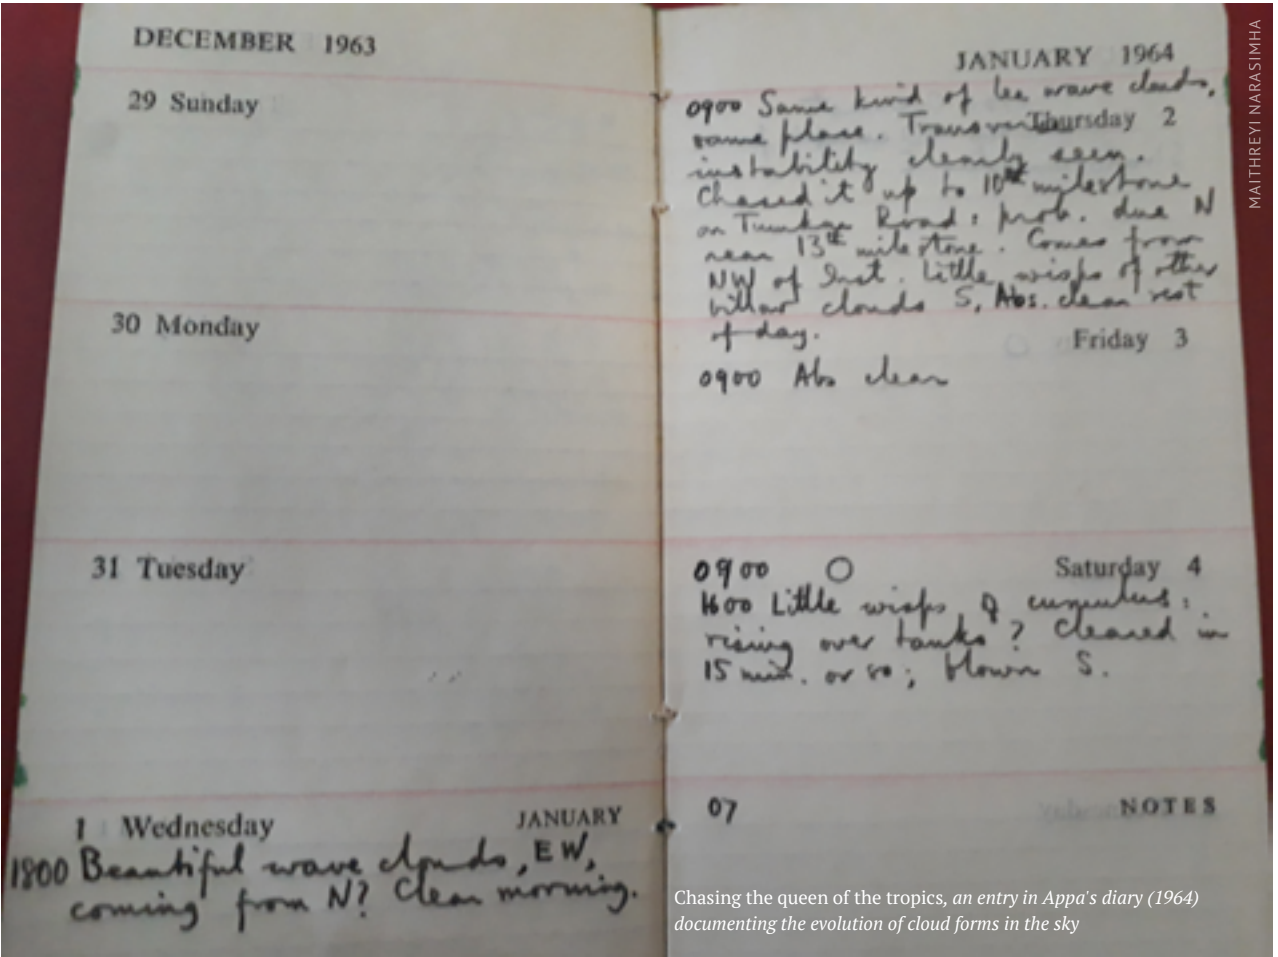 DECEMBER 1963
29 Sunday
30 Monday
31 Tuesday
1 Wednesday JANUARY
1800 Beautiful wave clouds, EW,
coming from N? Clear morning.
JANUARY 1964
0900 Same kind of lee wave clouds,
Thursday 2
same place. Transverse
instability clearly seen.
Chased it up to 10th milestone
on Tumkur Road: prob. due N
near 13th milestone. Comes from
NW of Inst. Little wisps of other
billow clouds S, Abs. clear rest
of day.
Friday 3
0900 Abs clear
0900 O Saturday 4
1600 Little wisps of cumulus:
rising over tanks? Cleared in
15 min. or so; blown S.
07 NOTES
Chasing the queen of the tropics, an entry in Appa's diary (1964)
documenting the evolution of cloud forms in the sky
MAITHREYI NARASIMHA